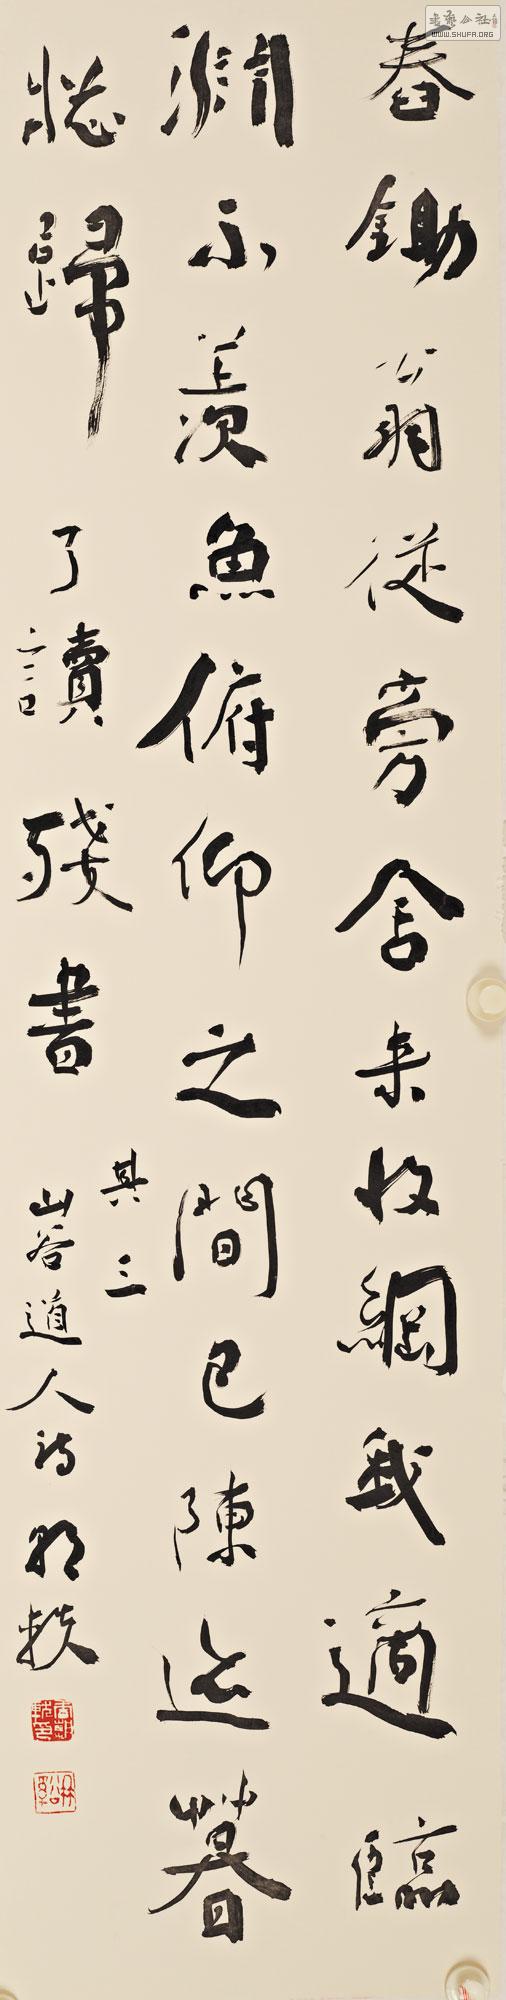 書藝公社
WWW.SHUFA.ORG
舂鋤翁從旁舍來收網我適臨
淵不羨魚俯仰之間已陳迹暮
牕歸了讀殘書
其三
山谷道人詩朝軼